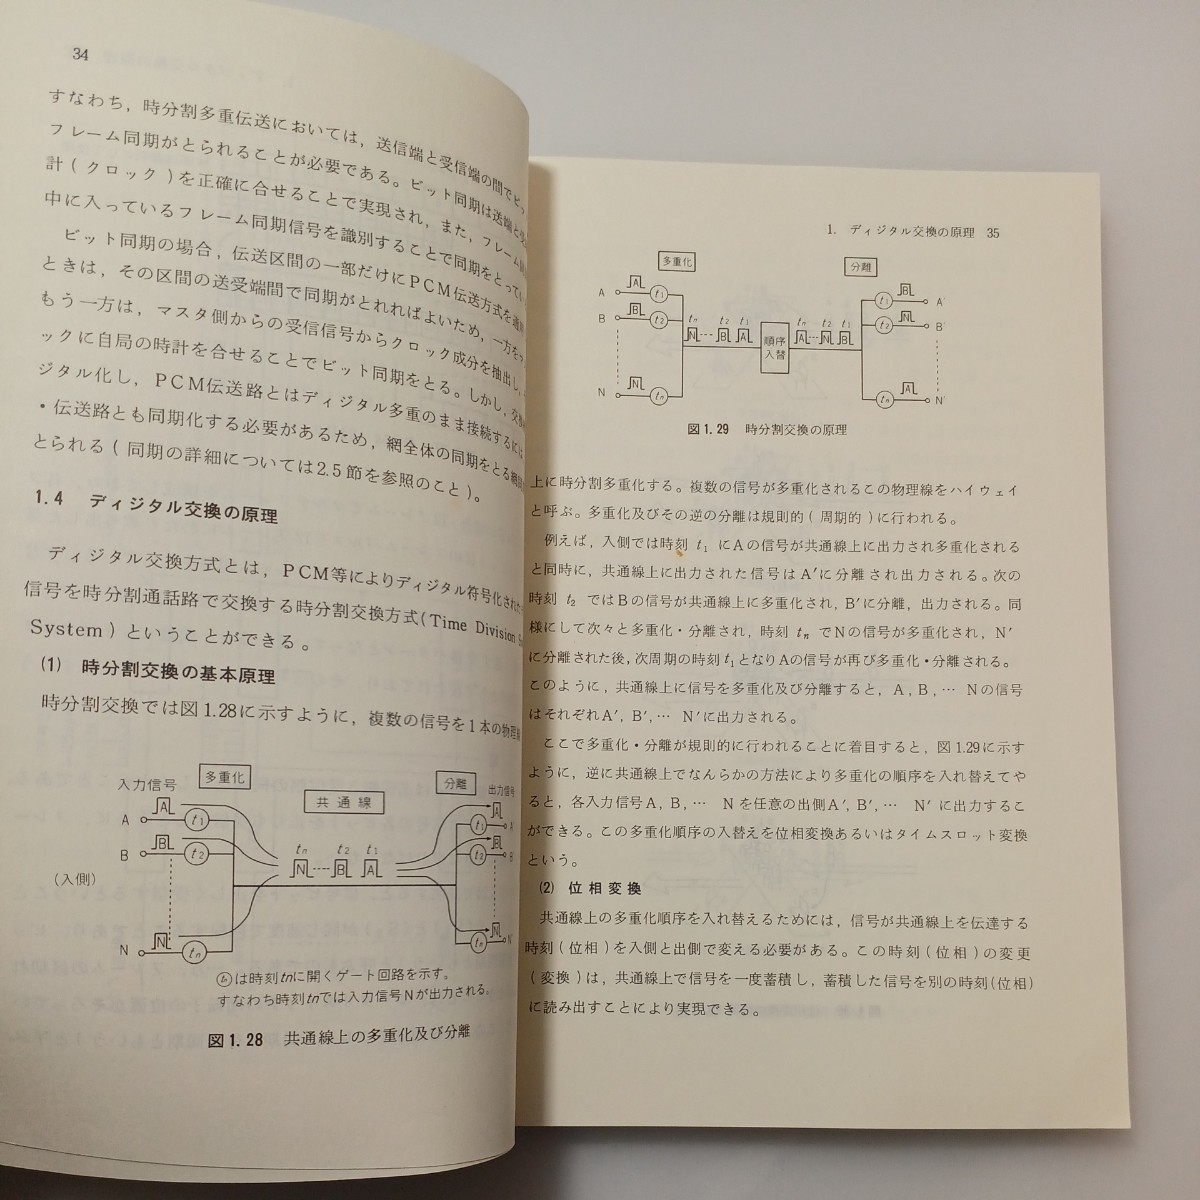 34
すなわち，時分割多重伝送においては，送信端と受信端の間でビッ
フレーム同期がとられることが必要である。ビット同期は送端と受
計(クロック)を正確に合せることで実現され，また，フレーム
中に入っているフレーム同期信号を識別することで同期をとってい
ビット同期の場合，伝送区間の一部だけにPCM伝送方式を適
ときは，その区間の送受端間で同期がとれればよいため，一方を
もう一方は，マスタ側からの受信信号からクロック成分を抽出し，
ックに自局の時計を合せることでビット同期をとる。しかし，交
ジタル化し，PCM伝送路とはディジタル多重のまま接続するには
・伝送路とも同期化する必要があるため，網全体の同期をとる網
とられる(同期の詳細については2.5節を参照のこと)。
1.4 ディジタル交換の原理
ディジタル交換方式とは，PCM等によりディジタル符号化された
信号を時分割通話路で交換する時分割交換方式(Time Division
System)ということができる。
(1) 時分割交換の基本原理
時分割交換では図1.28に示すように，複数の信号を1本の物理
入力信号
多重化
共通線
分離
出力信号
A
A
t1
B
B
t2
(入側)
N
N
tn
tn t2 t1
N B A
A
t1
A'
B
t2
B'
N
tn
N'
tnは時刻tnに開くゲート回路を示す。
すなわち時刻tnでは入力信号Nが出力される。
図1.28 共通線上の多重化及び分離
1. ディジタル交換の原理 35
多重化
分離
A
A
t1
B
B
t2
N
N
tn
tn t2 t1
N B A
順序
入替
tn t2 t1
A N B
B
t1
A'
N
t2
B'
A
tn
N'
図1.29 時分割交換の原理
上に時分割多重化する。複数の信号が多重化されるこの物理線をハイウェイ
と呼ぶ。多重化及びその逆の分離は規則的(周期的)に行われる。
例えば，入側では時刻 t1 にAの信号が共通線上に出力され多重化される
と同時に，共通線上に出力された信号はA′に分離され出力される。次の
時刻 t2 ではBの信号が共通線上に多重化され，B′に分離，出力される。同
様にして次々と多重化・分離され，時刻 tn でNの信号が多重化され，N′
に分離された後，次周期の時刻t1となりAの信号が再び多重化・分離される。
このように，共通線上に信号を多重化及び分離すると，A，B，… Nの信号
はそれぞれA′，B′，… N′に出力される。
ここで多重化・分離が規則的に行われることに着目すると，図1.29に示す
ように，逆に共通線上でなんらかの方法により多重化の順序を入れ替えてや
ると，各入力信号A，B，… Nを任意の出側A′，B′，… N′に出力するこ
ができる。この多重化順序の入替えを位相変換あるいはタイムスロット変換
という。
(2) 位相変換
共通線上の多重化順序を入れ替えるためには，信号が共通線上を伝達する
時刻(位相)を入側と出側で変える必要がある。この時刻(位相)の変更
(変換)は，共通線上で信号を一度蓄積し，蓄積した信号を別の時刻(位相)
に読み出すことにより実現できる。